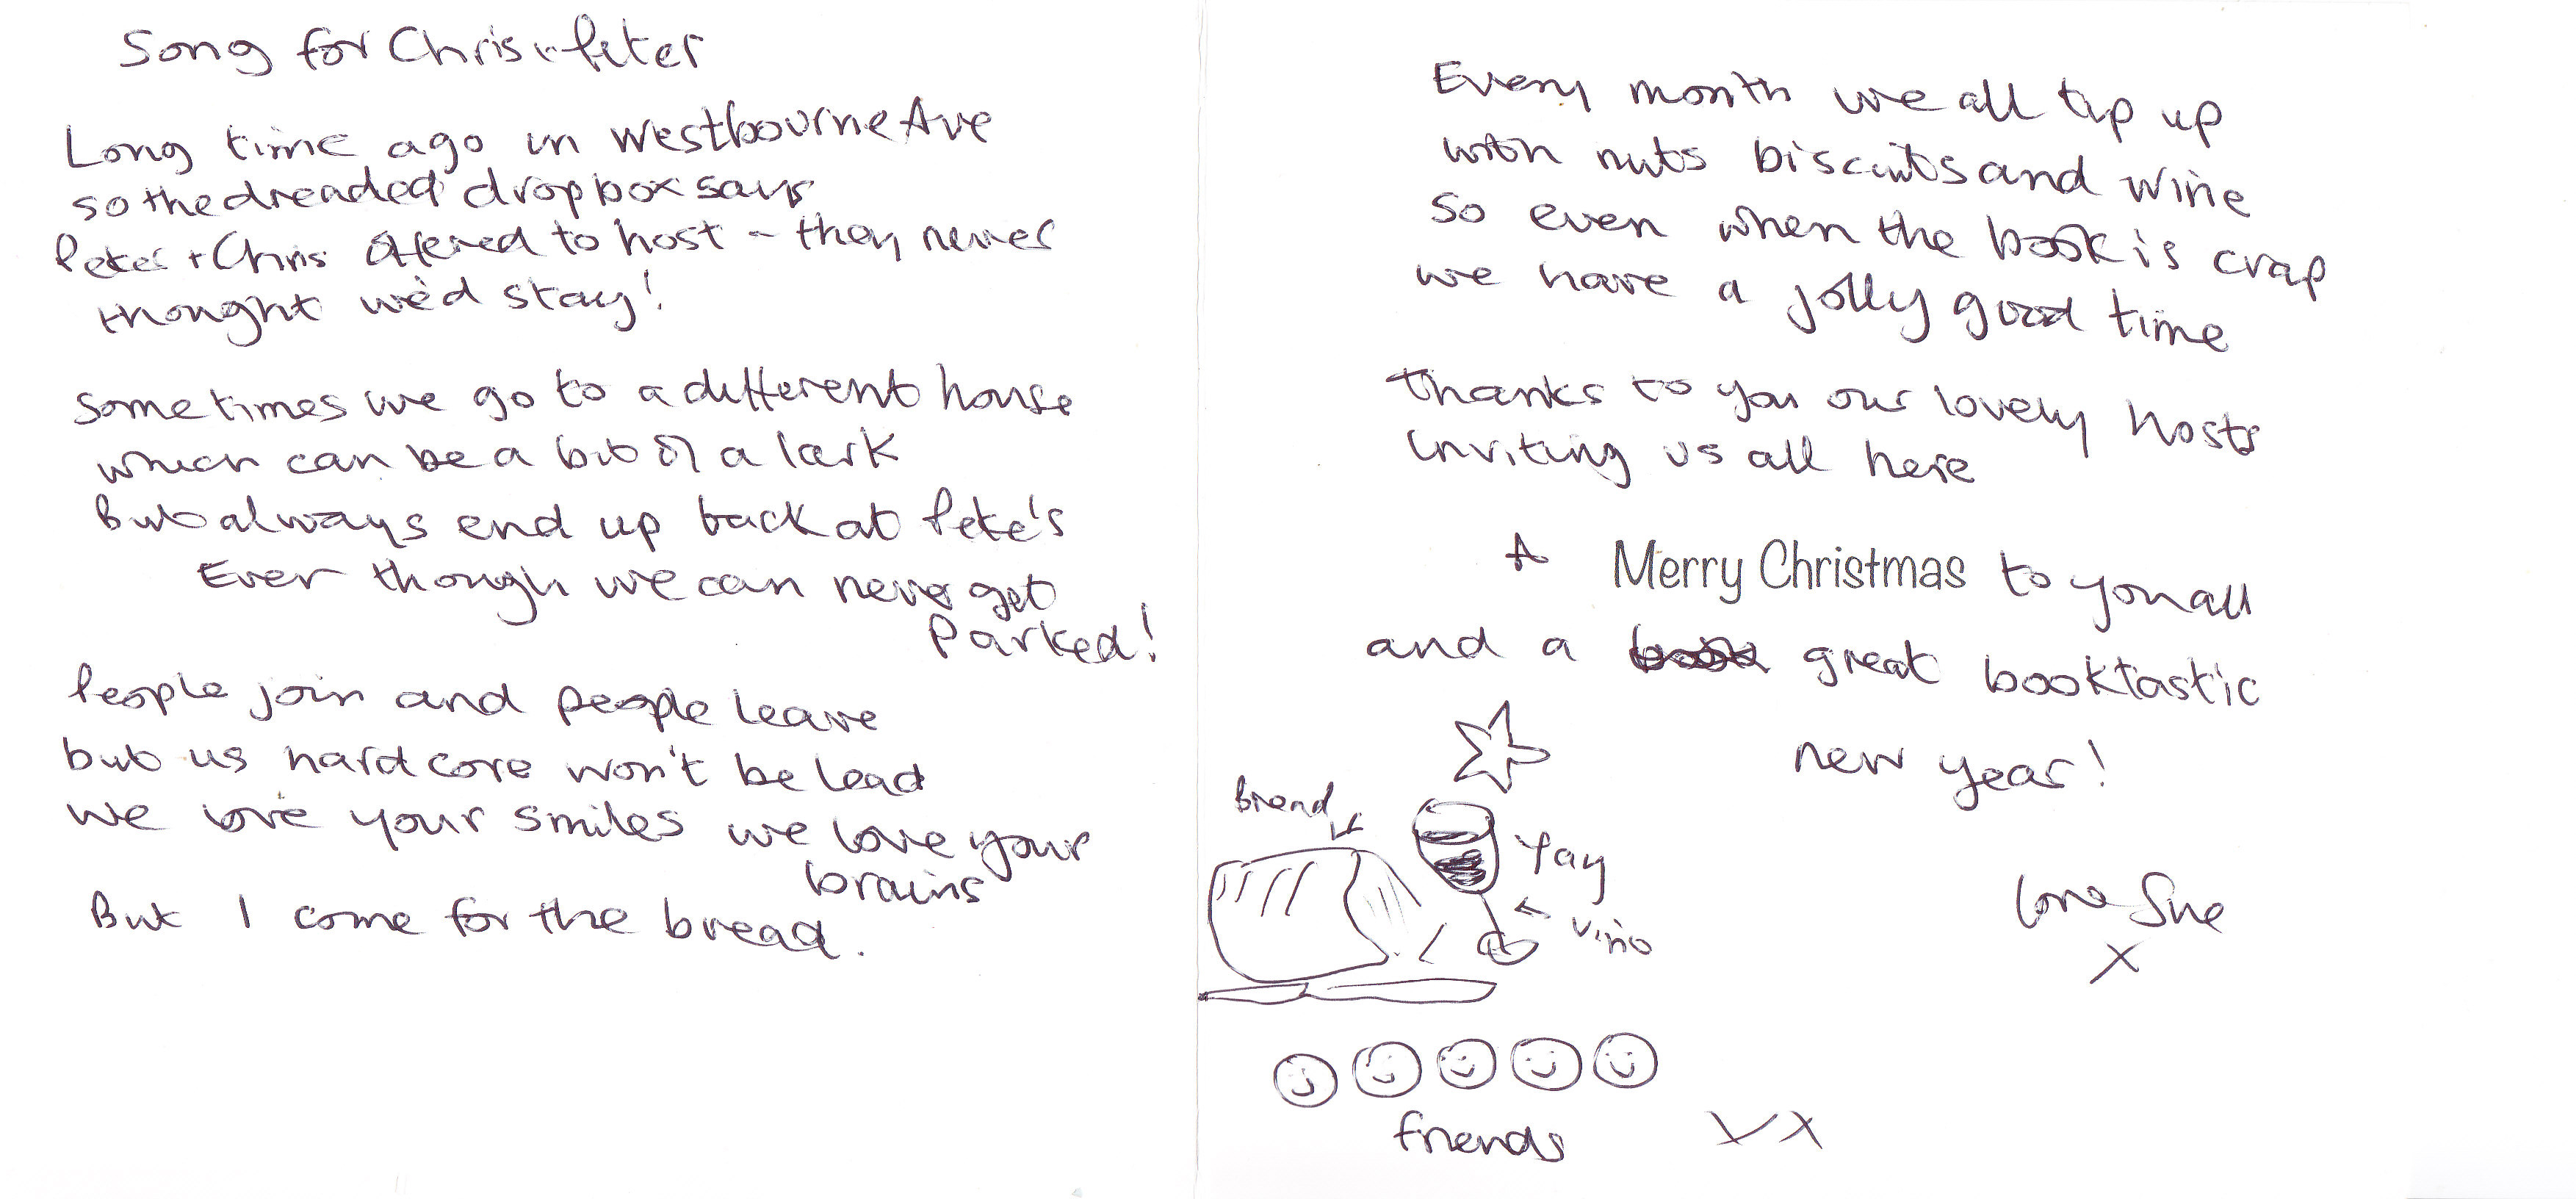 Song for Chris + Peter
Long time ago in Westbourne Ave
so the dreaded dropbox says
Peter + Chris offered to host - they never
thought we'd stay!
Sometimes we go to a different house
which can be a bit of a lark
But always end up back at Pete's
Even though we can never get
Parked!
People join and people leave
but us hardcore won't be lead
We love your smiles we love your
brains
But I come for the bread.
Every month we all tip up
with nuts biscuits and wine
So even when the book is crap
we have a jolly good time
Thanks to you our lovely hosts
inviting us all here
A Merry Christmas to you all
and a great booktastic
new year!
bread
Yay
vino
love Sue
X
friends
X